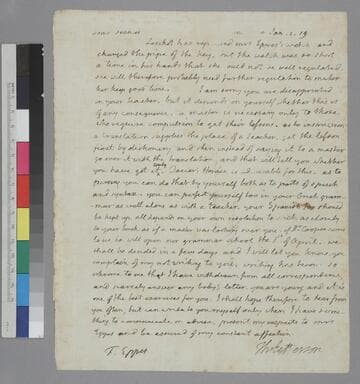 Dear Francis
Jan. 1. 19
has repaired mrs Eppes's watch and
changed the pipe of the key, but the watch was so short
a time in his hands that she could not be well regulated.
she will therefore probably need further regulation to make
her keep good time. I am sorry you are disappointed
in your teacher, but it depends on yourself whether this is
of any consequence. a master is necessary only to those
who require compulsion to get their lesson. as to
a translation supplies the place of a teacher. get the lesson
first by dictionary and then instead of saying it to a master
go over it with the translation, and that will tell you whether
you have got it. Dacier's Horace is valuable for this. as to
you can do that by yourself both as to parts of speech
and syntax. you can perfect yourself too in your Greek gram-
mar as well alone as with a teacher. your Spanish too should
be kept up. all depends on your own resolution to stick as closely
to your book as if a master was looking over you. if Dr Cooper comes
to us, he will open our grammar school the 1st of April. we
shall be decided in a few days and I will let you know. you
complain of my not writing to you. writing has been so
irksome to me that I have withdrawn from all correspondence,
and scarcely answer any body's letter. you are young and it is
one of the best exercises for you. I shall hope therefore to hear from
you often; but can write to you myself only when I have some-
thing to communicate or advise. present my respects to mrs
Eppes and be assured of my constant affection.
F. Eppes
Th: Jefferson